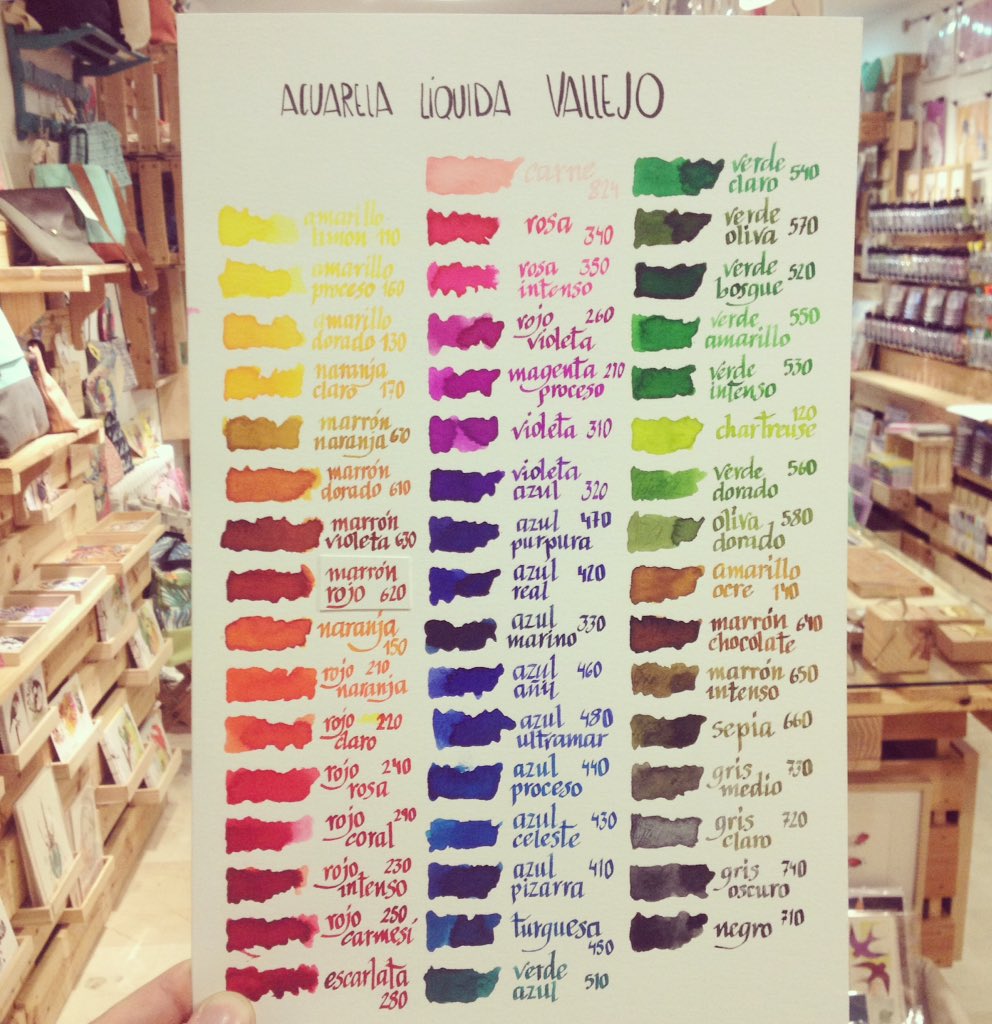 ACUARELA LÍQUIDA VALLEJO
amarillo
limón 110
amarillo
proceso 160
amarillo
dorado 130
naranja
claro 170
marrón
naranja 600
marrón
dorado 610
marrón
violeta 630
marrón
rojo 620
naranja
150
rojo 210
naranja
rojo 220
claro
rojo 240
rosa
rojo 290
coral
rojo 230
intenso
rojo 250
carmesí
escarlata
280
carne
824
rosa
340
rosa 350
intenso
rojo 260
violeta
magenta 270
proceso
violeta 310
violeta
azul 320
azul 470
purpura
azul 420
real
azul 330
marino
azul 460
añil
azul 480
ultramar
azul 440
proceso
azul 430
celeste
azul 410
pizarra
turquesa
450
verde
azul 510
verde
claro 540
verde
oliva 570
verde
bosque 520
verde 550
amarillo
verde 530
intenso
120
chartreuse
verde 560
dorado
oliva 580
dorado
amarillo
ocre 140
marrón 640
chocolate
marrón 650
intenso
sepia 660
gris 730
medio
gris 720
claro
gris 740
oscuro
negro 710